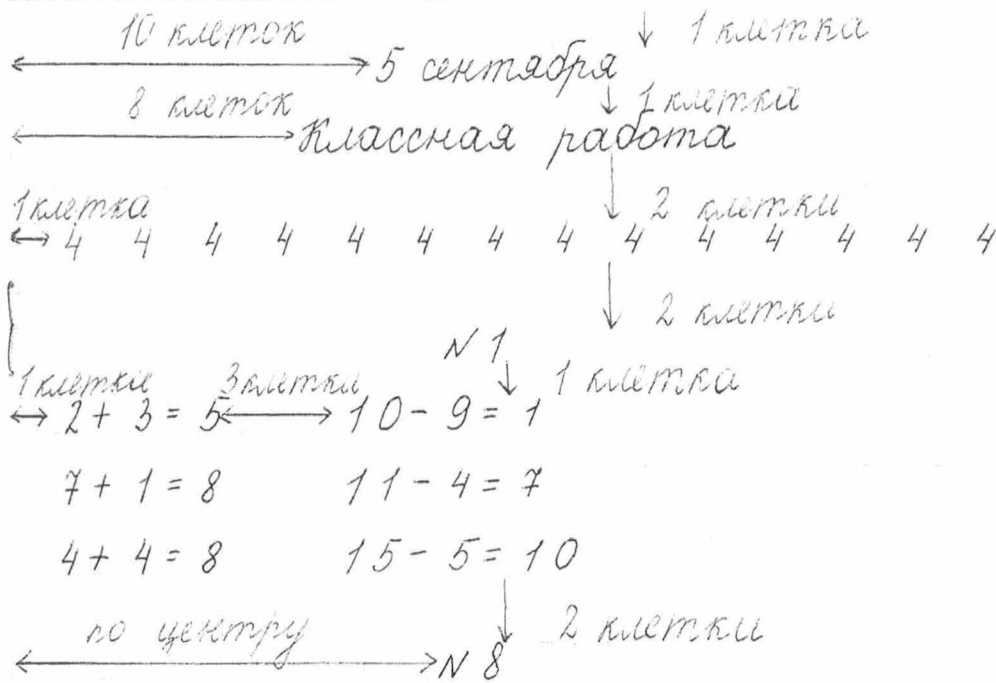 10 клеток ↓ 1 клетка
5 сентября
8 клеток ↓ 1 клетка
Классная работа
1 клетка ↓ 2 клетки
4 4 4 4 4 4 4 4 4 4 4 4 4 4
↓ 2 клетки
N 1
1 клетки 3 клетки ↓ 1 клетка
2 + 3 = 5 10 - 9 = 1
7 + 1 = 8 11 - 4 = 7
4 + 4 = 8 15 - 5 = 10
по центру ↓ 2 клетки
N 8